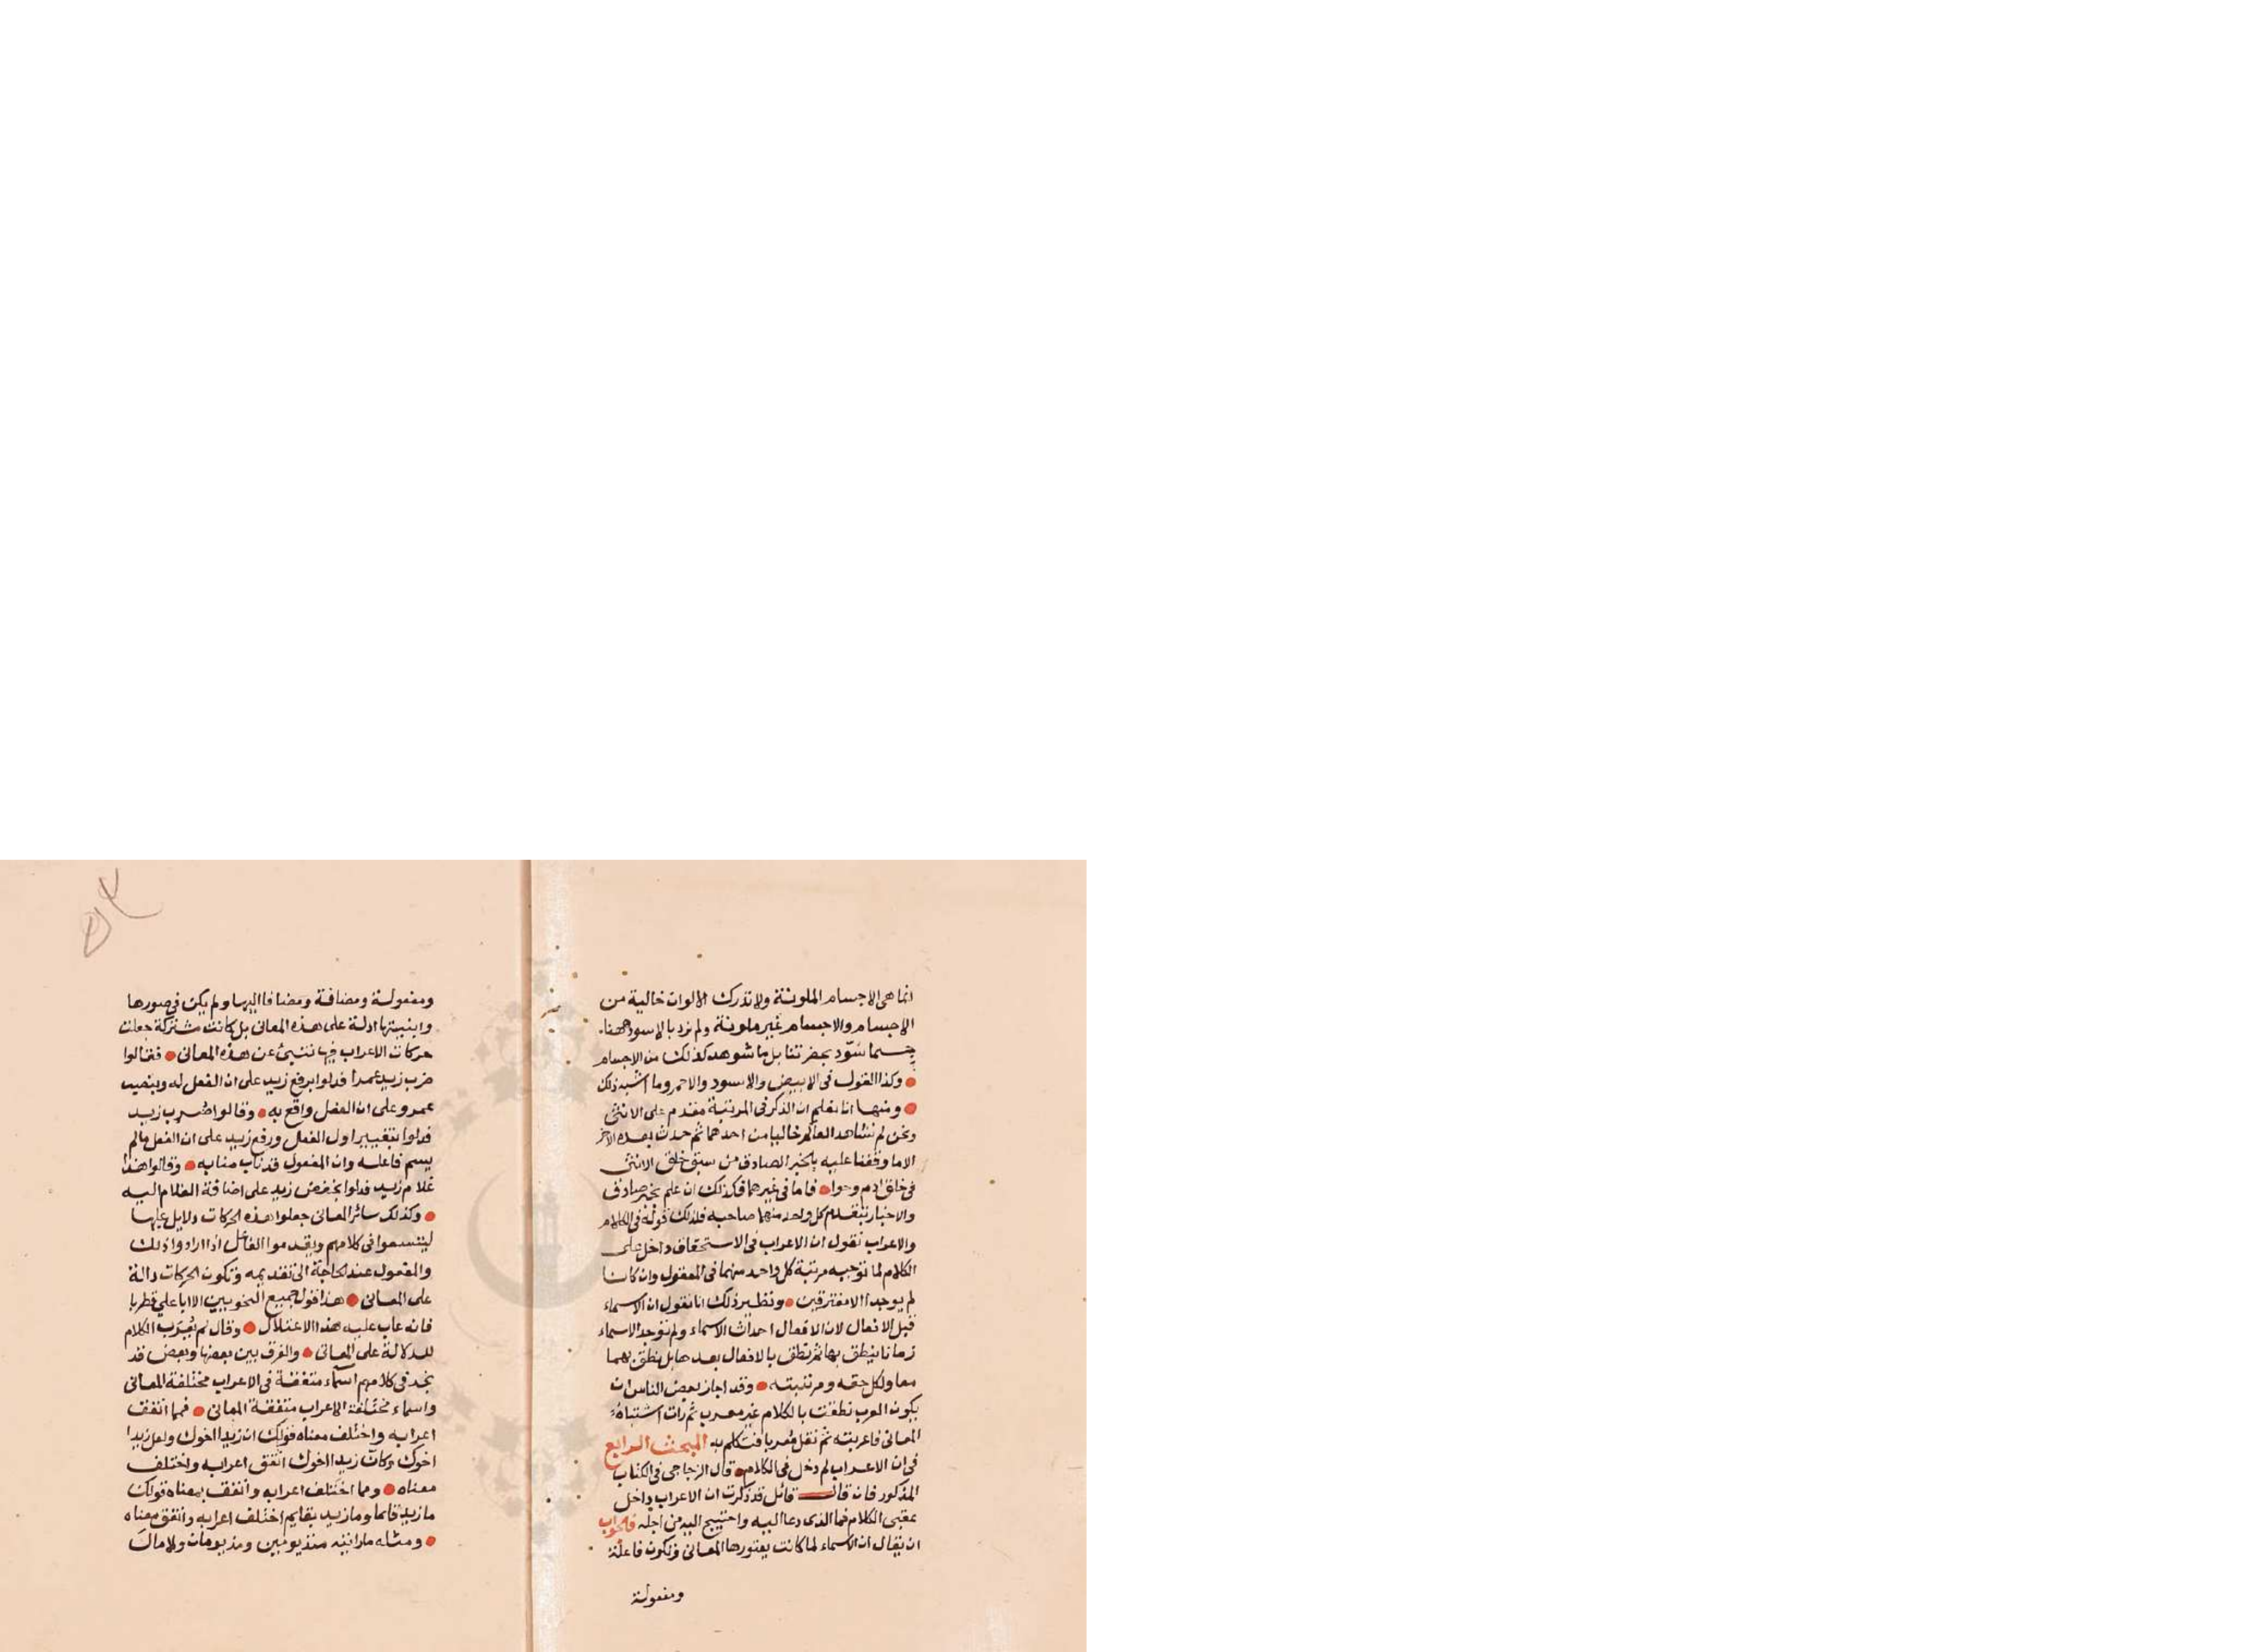 انما هى الاجسام الملونة ولا تدرك الالوان خالية من
الاجسام والاجسام غير ملونة ولم نرد بالاسود ههنا
جسما سَوّد بحضرتنا بل ما شوهد كذلك من الاجسام
وكذا القول فى الابيض والاسود والاحمر وما اشبه ذلك
ومنها انا نعلم ان الذكر فى المرتبة مقدم على الانثى
ونحن لم نشاهد العالم خاليا من احدهما ثم حدث بعده الاخر
الا ما وقفنا عليه بالخبر الصادق من سبق خلق الانثى
فى خلق ادم وحوا فاما فى غيرهما فكذلك ان علم بخبر صادق
والاخبار بتقدم كل واحد منهما صاحبه فلذلك قولنا فى الكلام
والاعراب نقول ان الاعراب فى الاستحقاق داخل على
الكلام لما توجبه مرتبة كل واحد منهما فى المعقول وان كانا
لم يوجدا الا مفترقين ونظير ذلك انا نقول ان الاسماء
قبل الافعال لان الافعال احداث الاسماء ولم توجد الاسماء
زمانا ينطق بها ثم نطق بالافعال بعدها بل نطق بهما
معا ولكل حقه ومرتبته وقد اجاز بعض الناس ان
يكون العرب نطقت بالكلام غير معرب ثم رات اشتباه
المعانى فاعربته ثم نقل معربا فتكلم به البحث الرابع
فى ان الاعراب لم دخل فى الكلام قال الزجاجى فى الكتاب
المذكور فان قال قائل قد ذكرت ان الاعراب داخل
عقبى الكلام فما الذى دعا اليه واحتيج اليه من اجله فالجواب
ان يقال ان الاسماء لما كانت يعتورها المعانى وتكون فاعلة
ومفعولة
ومفعولة ومضافة ومضافا اليها ولم يكن فى صورها
وابنيتها ادلة على هذه المعانى بل كانت مشتركة جعلت
حركات الاعراب فيها تنبئ عن هذه المعانى فقالوا
ضرب زيد عمرا فدلوا برفع زيد على ان الفعل له وبنصب
عمرو على ان الفعل واقع به وقالوا ضُرِب زيد
فدلوا بتغيير اول الفعل ورفع زيد على ان الفعل مالم
يسم فاعله وان المفعول قد ناب منابه وقالوا هذا
غلام زيد فدلوا بخفض زيد على اضافة الغلام اليه
وكذلك سائر المعانى جعلوا هذه الحركات دلايل عليها
ليتسعوا فى كلامهم ويقدموا الفاعل اذا ارادوا ذلك
والمفعول عند الحاجة الى تقديمه وتكون الحركات دالة
على المعانى هذا قول جميع النحويين الا ابا على قطربا
فانه عاب عليه هذا الاعتلال وقال لم يُعرَب الكلام
للدلالة على المعانى والفرق بين بعضها وبعض قد
نجد فى كلامهم اسماء متفقة فى الاعراب مختلفة المعانى
واسماء مختلفة الاعراب متفقة المعانى فما اتفق
اعرابه واختلف معناه قولك ان زيدا اخوك ولعل زيدا
اخوك وكان زيدا اخوك اتفق اعرابه واختلف
معناه ومما اختلف اعرابه واتفق معناه قولك
ما زيد قائما وما زيد بقايم اختلف اعرابه واتفق معناه
ومثله ما رايته منذ يومين ومذ يومان ولا مال